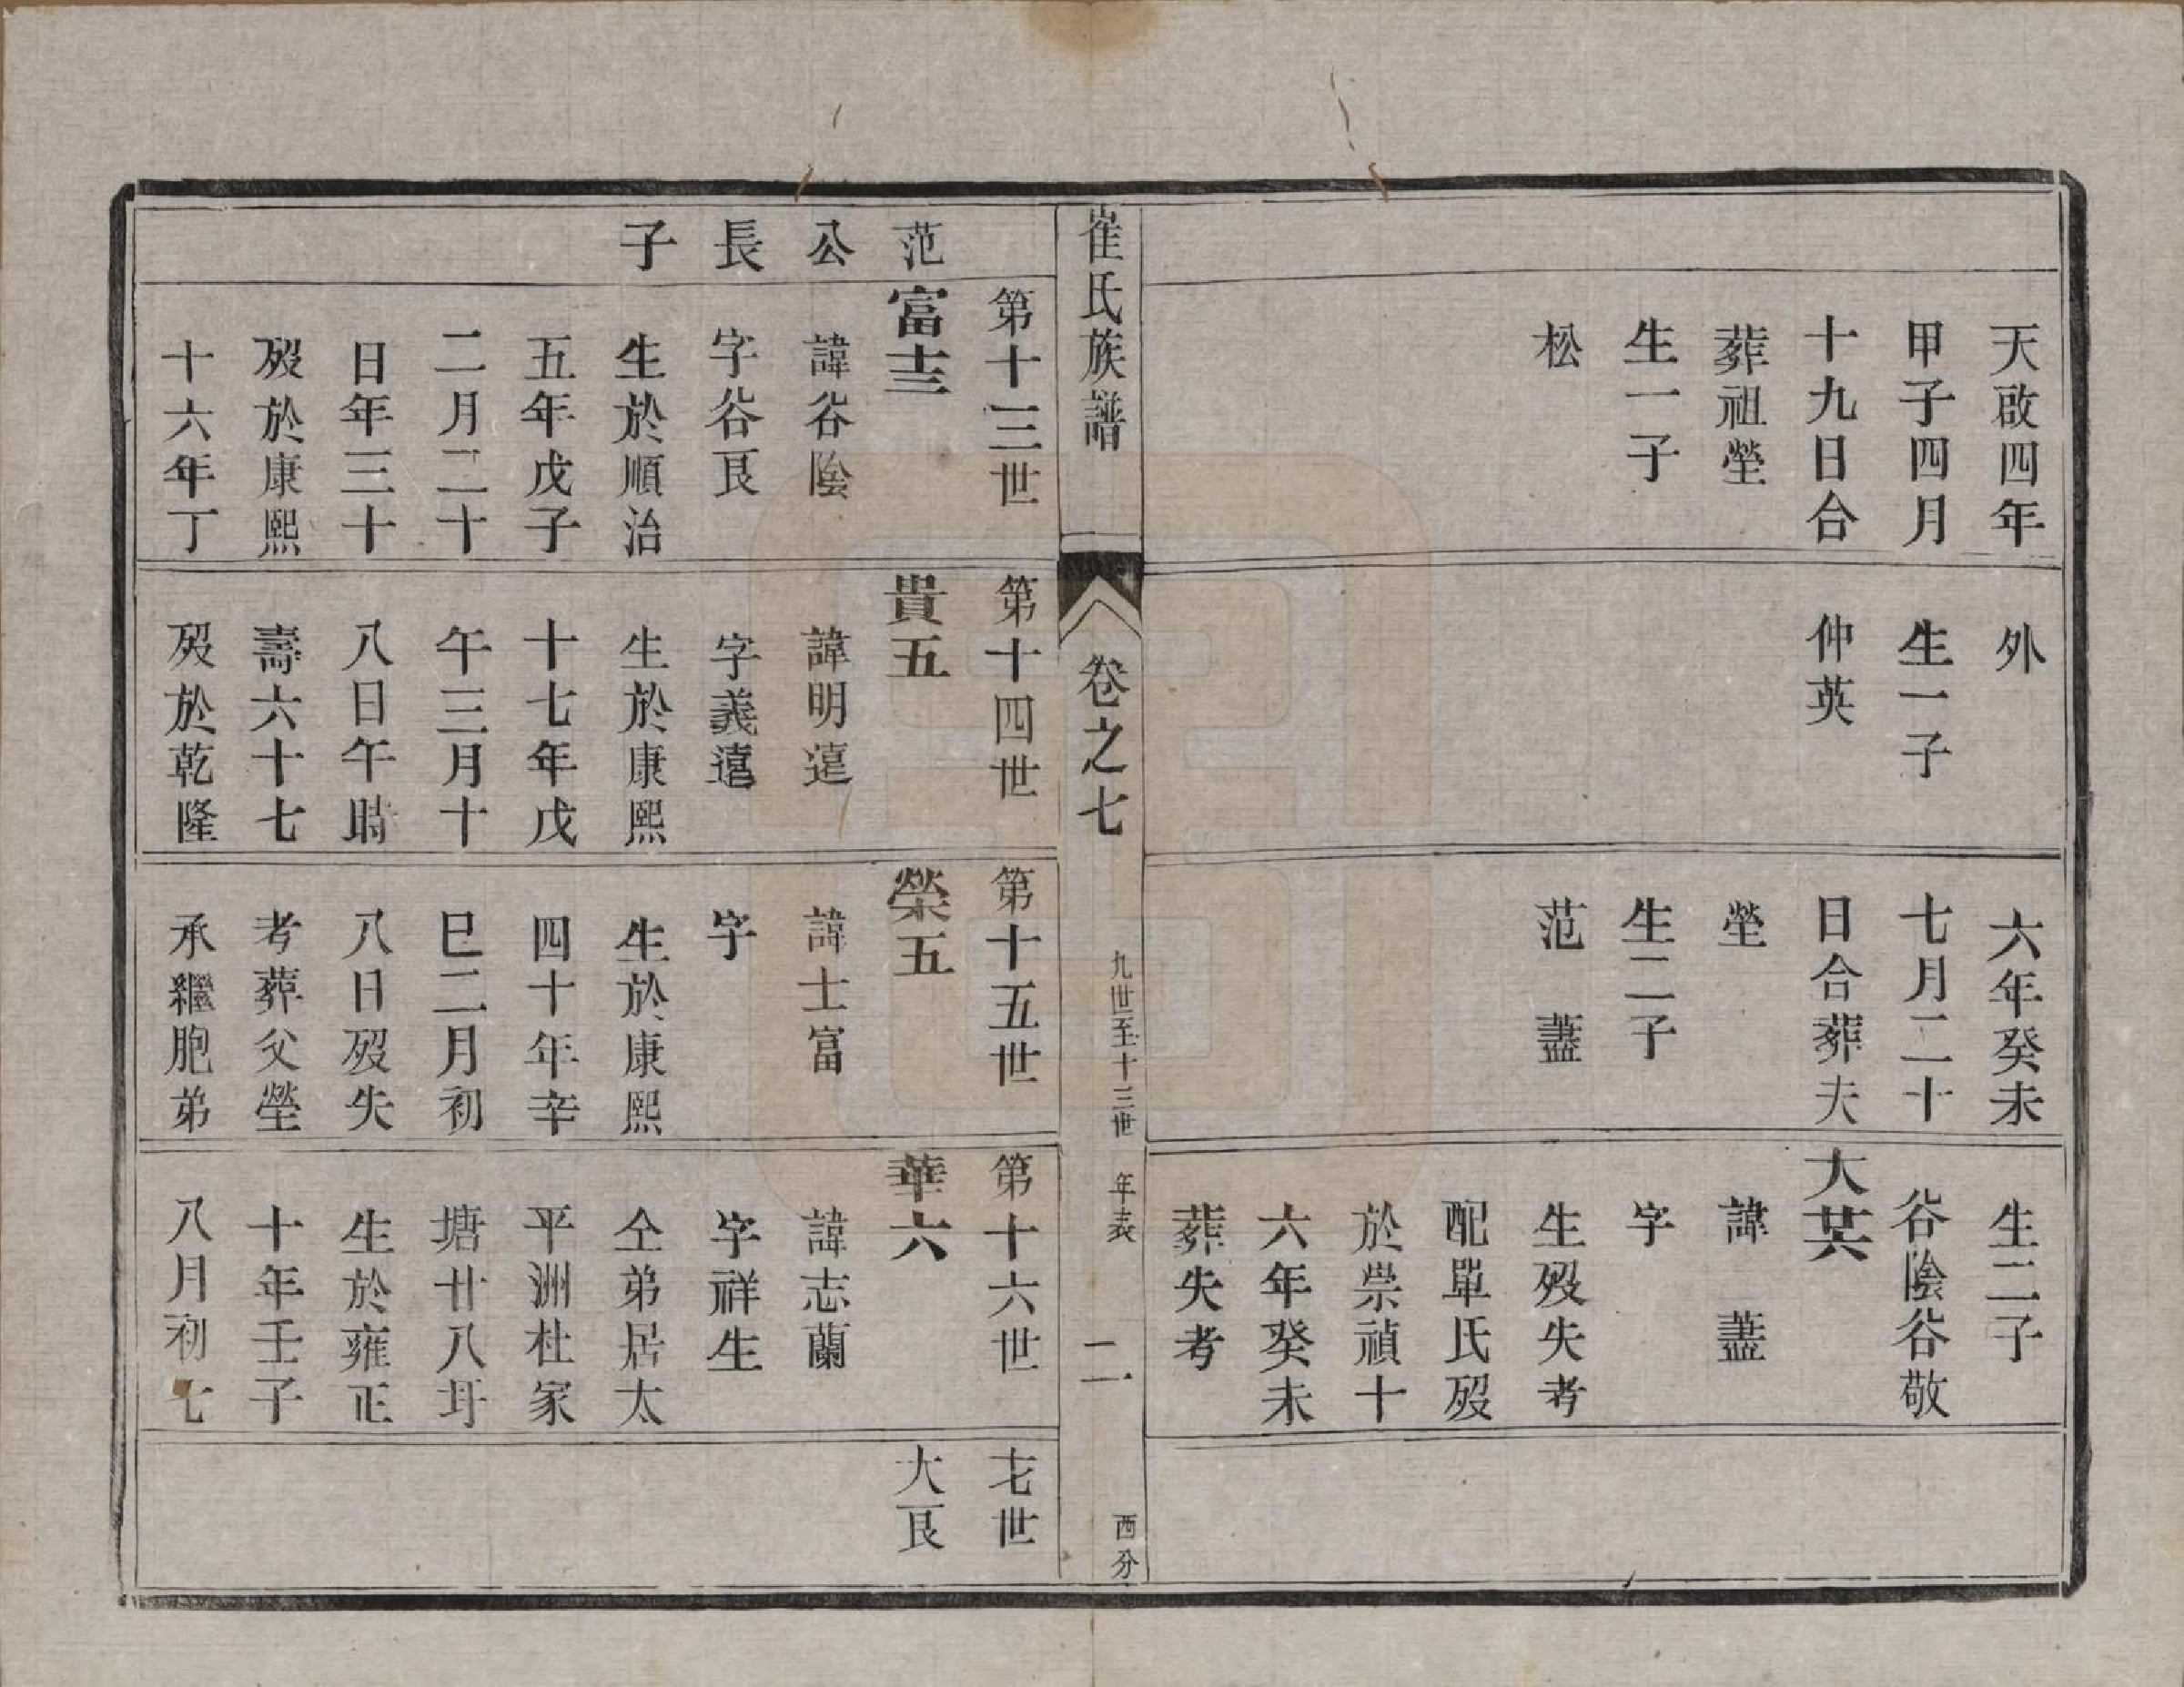 天啟四年
甲子四月
十九日合
葬祖塋
生一子
松
外
生一子
仲英
六年癸未
七月二十
日合葬夫
塋
生二子
范 藎
生二子
谷陰谷敬
大六
諱 藎
字
生歿失考
配單氏歿
於崇禎十
六年癸未
葬失考
崔氏族譜
卷之七
九世至十三世 年表
二
西分
范公長子
第十三世
富十三
諱谷陰
字谷艮
生於順治
五年戊子
二月二十
日年三十
歿於康熙
十六年丁
第十四世
貴五
諱明遠
字義遠
生於康熙
十七年戊
午三月十
八日午時
壽六十七
歿於乾隆
第十五世
榮五
諱士富
字
生於康熙
四十年辛
巳二月初
八日歿失
考葬父塋
承繼胞弟
第十六世
華六
諱志蘭
字祥生
仝弟居太
平洲杜家
塘廿八圩
生於雍正
十年壬子
八月初七
十七世
大艮